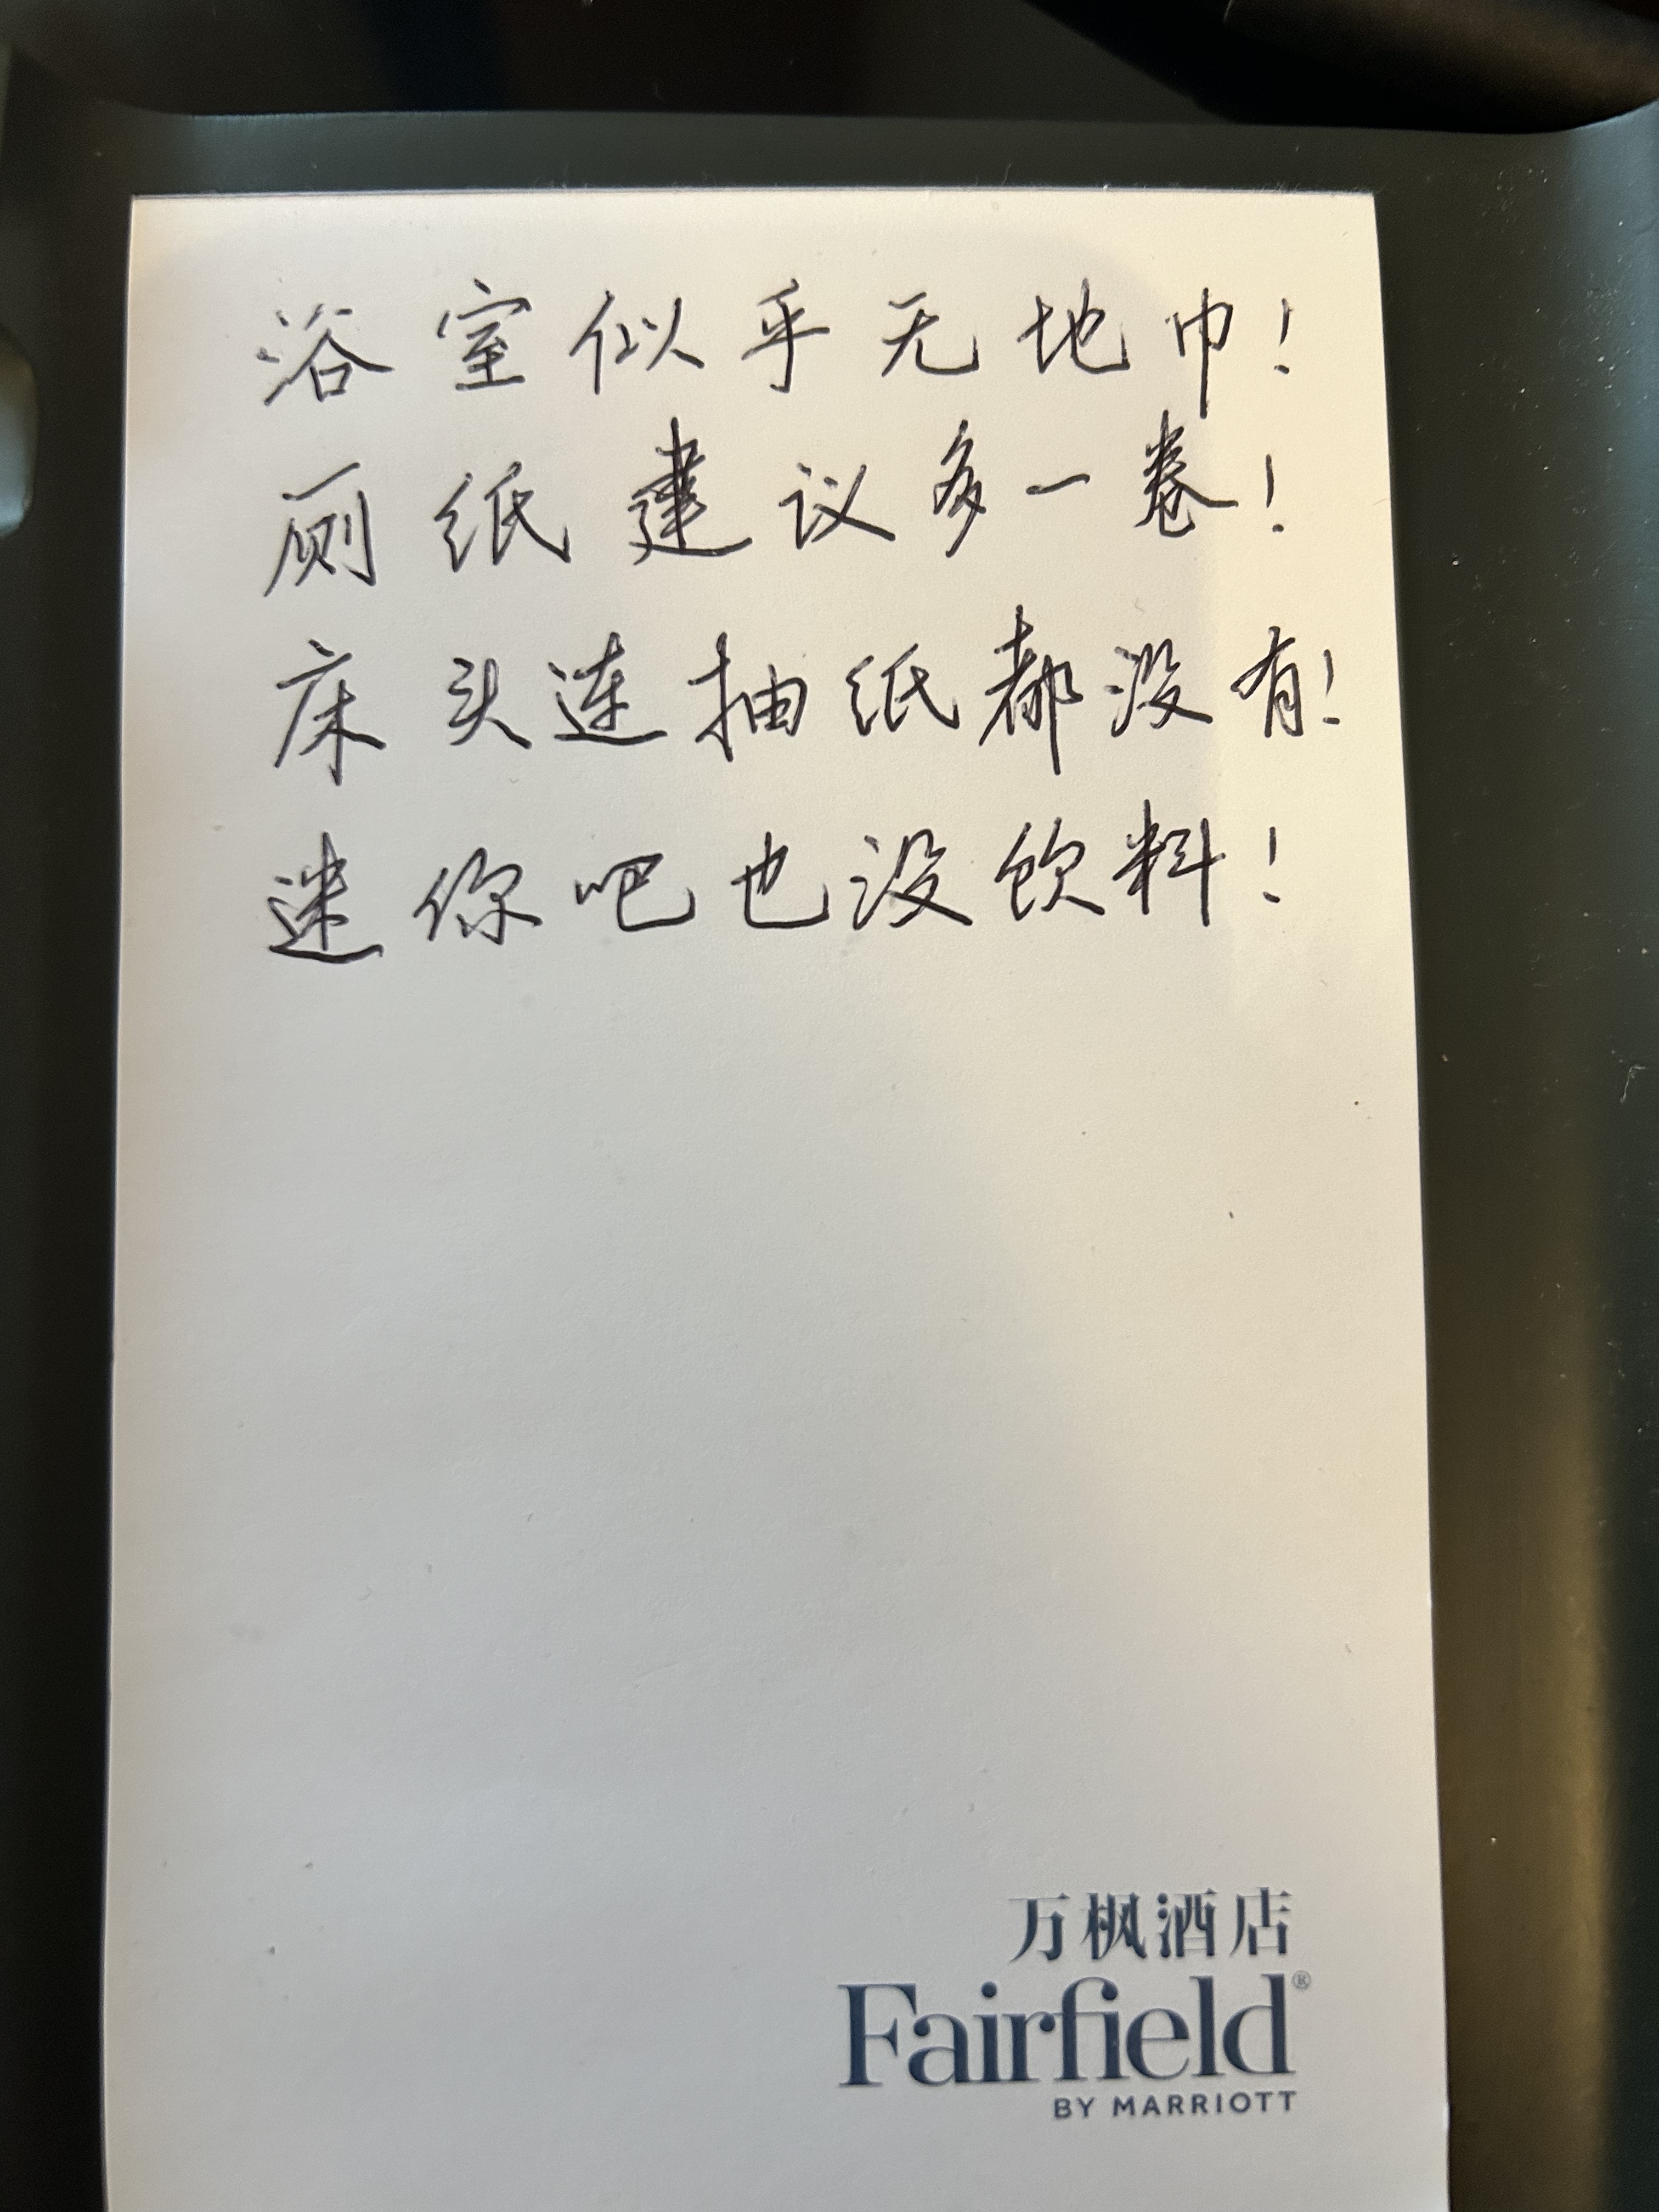 浴室似乎无地巾！
厕纸建议多一卷！
床头连抽纸都没有！
迷你吧也没饮料！
万枫酒店
Fairfield®
BY MARRIOTT